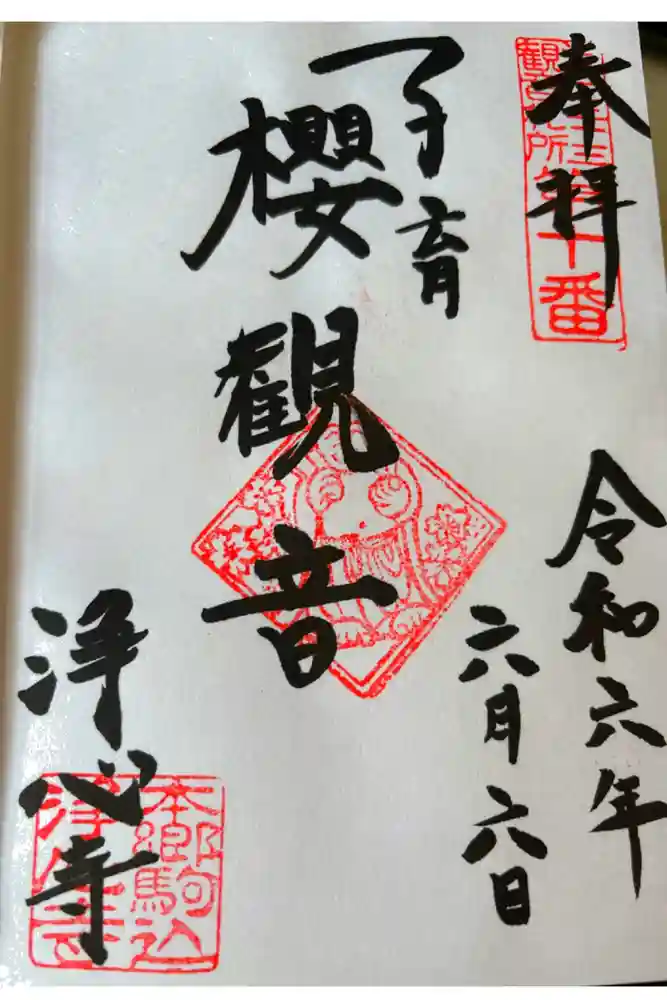 奉拝
令和六年
六月六日
子育
櫻觀音
浄心寺
十番
本郷駒込
浄心寺